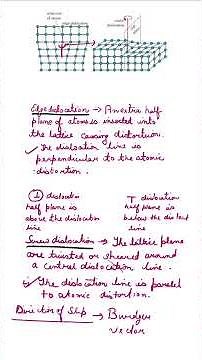 Edge dislocation → An extra half
plane of atoms is inserted into
the lattice causing distortion.
✓ The dislocation line is
perpendicular to the atomic
distortion.
⊥ dislocation
half plane is
above the dislocation
line
T dislocation
half plane is
below the dislocation
line
Screw dislocation → The lattice planes
are twisted or sheared around
a central dislocation line.
The dislocation line is parallel
to atomic distortion.
Direction of Slip → Burdger
vector